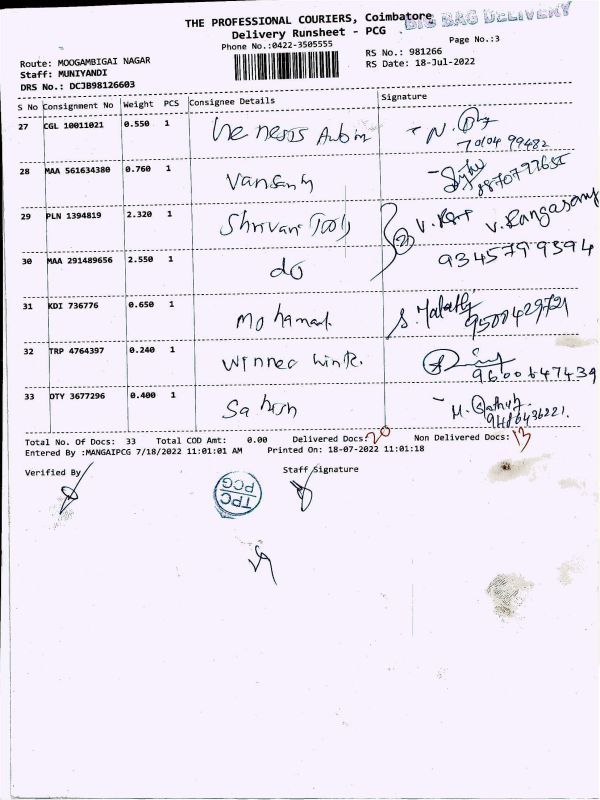 THE PROFESSIONAL COURIERS, Coimbatore
BIG BAG DELIVERY
Delivery Runsheet - PCG
Phone No.:0422-3505555
Page No.:3
Route: MOOGAMBIGAI NAGAR
RS No.: 981266
Staff: MUNIYANDI
RS Date: 18-Jul-2022
DRS No.: DCJB98126603
S No Consignment No Weight PCS Consignee Details Signature
27 CGL 10011021 0.550 1
28 MAA 561634380 0.760 1
29 PLN 1394819 2.320 1 V. Rangasamy
30 MAA 291489656 2.550 1 do 9345799394
31 KDI 736776 0.650 1 Mohamed S. Malathi 9500429721
32 TRP 4764397 0.240 1 9600647439
33 OTY 3677296 0.400 1 Sathish
Total No. Of Docs: 33 Total COD Amt: 0.00 Delivered Docs: 20 Non Delivered Docs: 13
Entered By :MANGAIPCG 7/18/2022 11:01:01 AM Printed On: 18-07-2022 11:01:18
Verified By Staff Signature
TPC
PCG